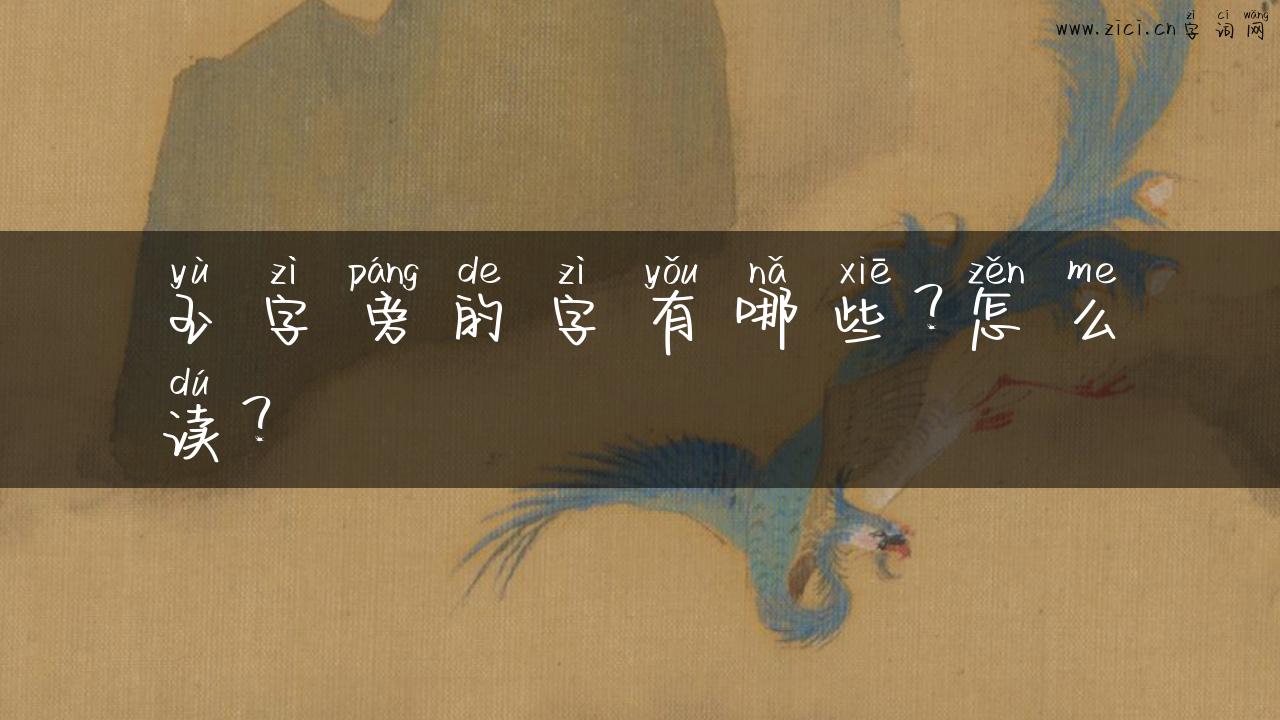 zì cí wǎng
www.zìcì.cn 字 词 网
yù zì páng de zì yǒu nǎ xiē zěn me
玉 字 旁 的 字 有 哪 些 ? 怎 么
dú
读 ?